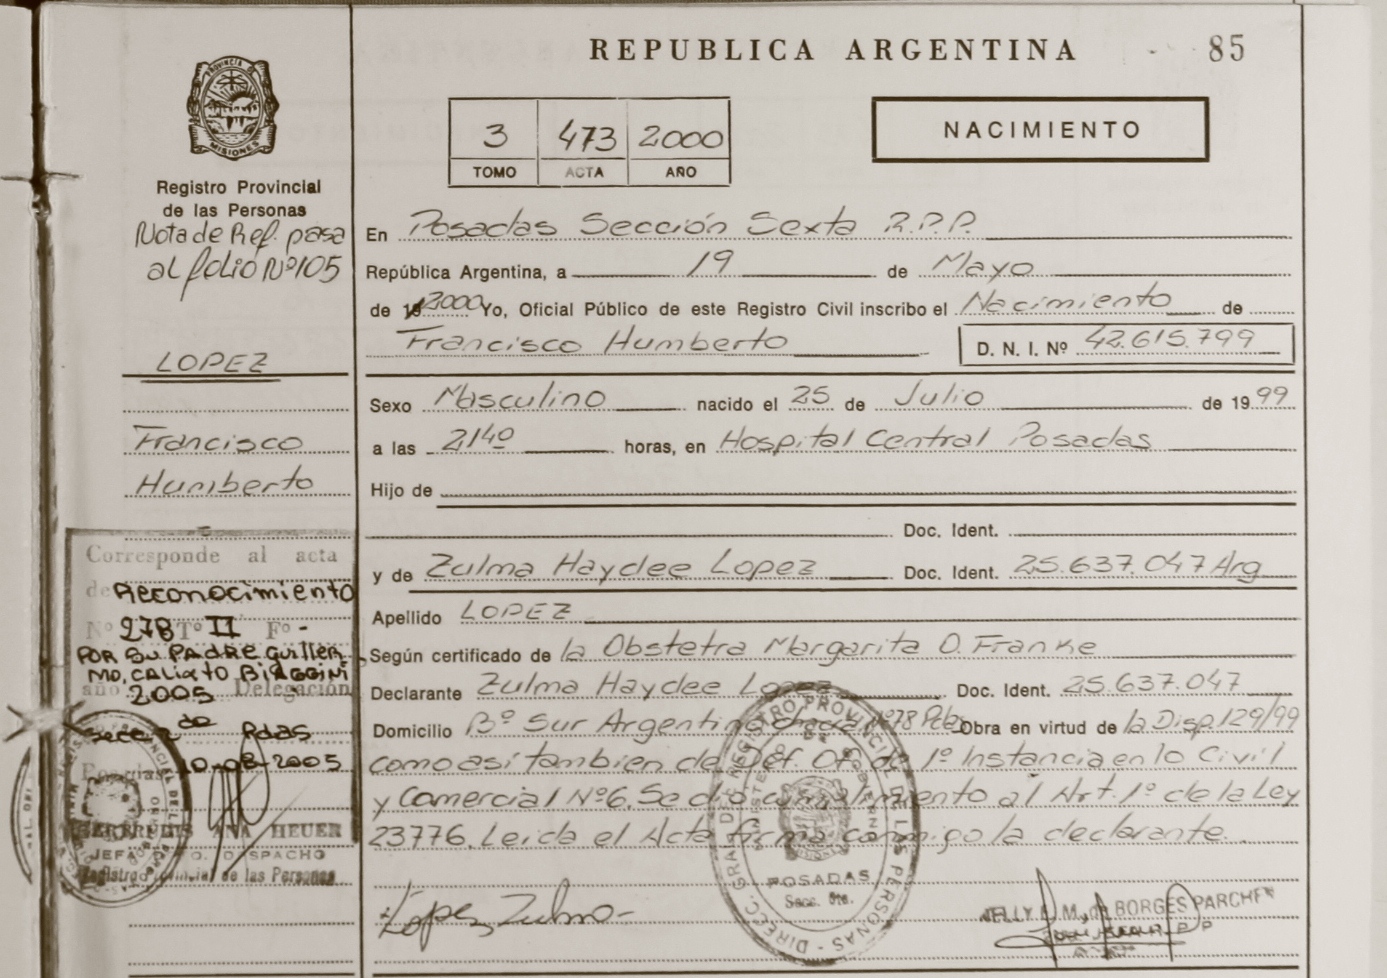 REPUBLICA ARGENTINA
85
PROVINCIA DE
MISIONES
Registro Provincial
de las Personas
Nota de Ref. pasa
al folio Nº 105
LOPEZ
Francisco
Humberto
3 473 2000
TOMO ACTA AÑO
NACIMIENTO
En Posadas Sección Sexta R.P.P.
República Argentina, a 19 de Mayo
de 2000 Yo, Oficial Público de este Registro Civil inscribo el Nacimiento de
Francisco Humberto D. N. I. Nº 42.615.799
Sexo Masculino nacido el 25 de Julio de 1999
a las 2140 horas, en Hospital Central Posadas
Hijo de
Doc. Ident.
y de Zulma Haydee Lopez Doc. Ident. 25.637.047 Arg
Apellido LOPEZ
Según certificado de la Obstetra Margarita O. Franke
Declarante Zulma Haydee Lopez Doc. Ident. 25.637.047
Domicilio Bº Sur Argentino chacra Nº 78 Pdas Obra en virtud de la Disp. 129/99
como asi tambien de Def. Of. de 1º Instancia en lo Civil
y Comercial Nº 6. Se dió cumplimiento al Art. 1º de la Ley
23776. Leida el Acta firma conmigo la declarante.
Lopez Zulma
Corresponde al acta
de Reconocimiento
Nº 278 Tº II Fº -
POR SU PADRE GUILLER
MO, CALIXTO BIAGGINI
año 2005 Delegación
Secc. 2da Pdas
Posadas 10-08-2005
GERTRUDIS ANA HEUER
JEFA DESPACHO
Registro Provincial de las Personas
DIREC. GRAL. DEL REGISTRO PROVINCIAL DE LAS PERSONAS
POSADAS
Secc. 6ta.
NELLY E. M. de BORGES PARCHEN